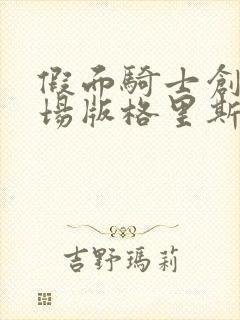 假面騎士創
場版格里斯
吉野瑪莉